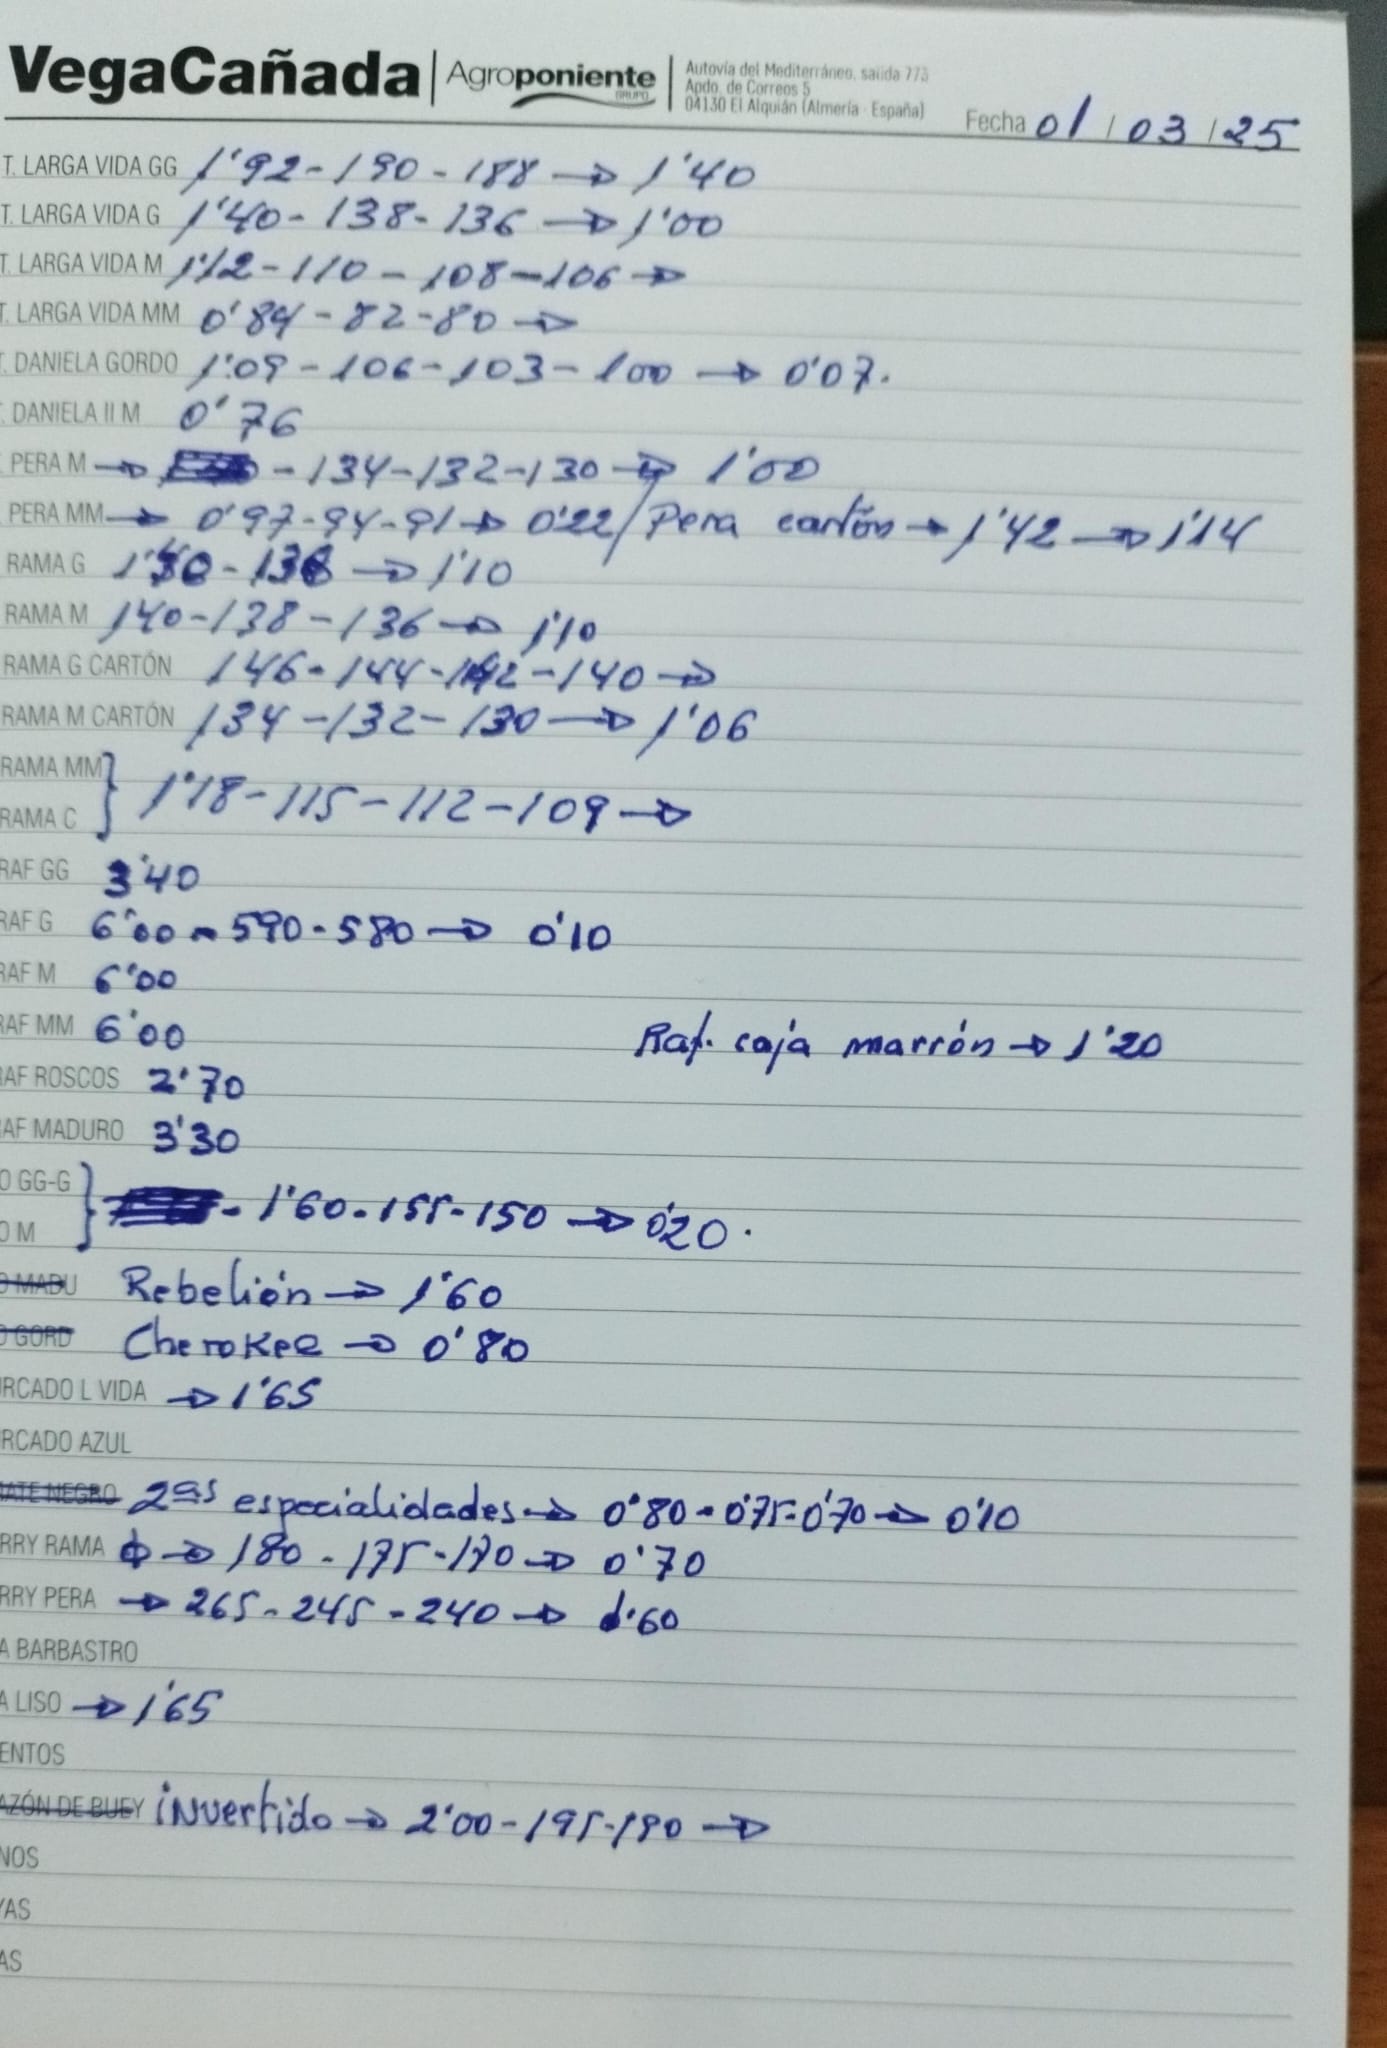 VegaCañada | Agroponiente GRUPO
Autovía del Mediterráneo, salida 773
Apdo. de Correos 5
04130 El Alquián (Almería - España)
Fecha 01 / 03 / 25
T. LARGA VIDA GG 1'92 - 190 - 188 → 1'40
T. LARGA VIDA G 1'40 - 138 - 136 → 1'00
T. LARGA VIDA M 1'12 - 110 - 108 - 106 →
T. LARGA VIDA MM 0'84 - 82 - 80 →
T. DANIELA GORDO 1'09 - 106 - 103 - 100 → 0'07.
. DANIELA II M 0'76
PERA M → - 134 - 132 - 130 → 1'00
PERA MM → 0'97 - 94 - 91 → 0'22 / Pera cartón → 1'42 → 1'14
RAMA G → 1'10
RAMA M 140 - 138 - 136 → 1'10
RAMA G CARTÓN 146 - 144 - 142 - 140 →
RAMA M CARTÓN 134 - 132 - 130 → 1'06
RAMA MM
RAMA C } 1'18 - 115 - 112 - 109 →
RAF GG 3'40
RAF G 6'00 - 590 - 580 → 0'10
RAF M 6'00
RAF MM 6'00
Raf. caja marrón → 1'20
RAF ROSCOS 2'70
RAF MADURO 3'30
O GG-G
O M } - 1'60 - 155 - 150 → 0'20.
O MADU Rebelión → 1'60
O GORD Cherokee → 0'80
RCADO L VIDA → 1'65
RCADO AZUL
MATE NEGRO 2as especialidades → 0'80 - 0'75 - 0'70 → 0'10
RRY RAMA → 180 - 175 - 170 → 0'70
RRY PERA → 265 - 245 - 240 → 1'60
A BARBASTRO
A LISO → 1'65
ENTOS
AZÓN DE BUEY invertido → 2'00 - 195 - 190 →
NOS
YAS
AS